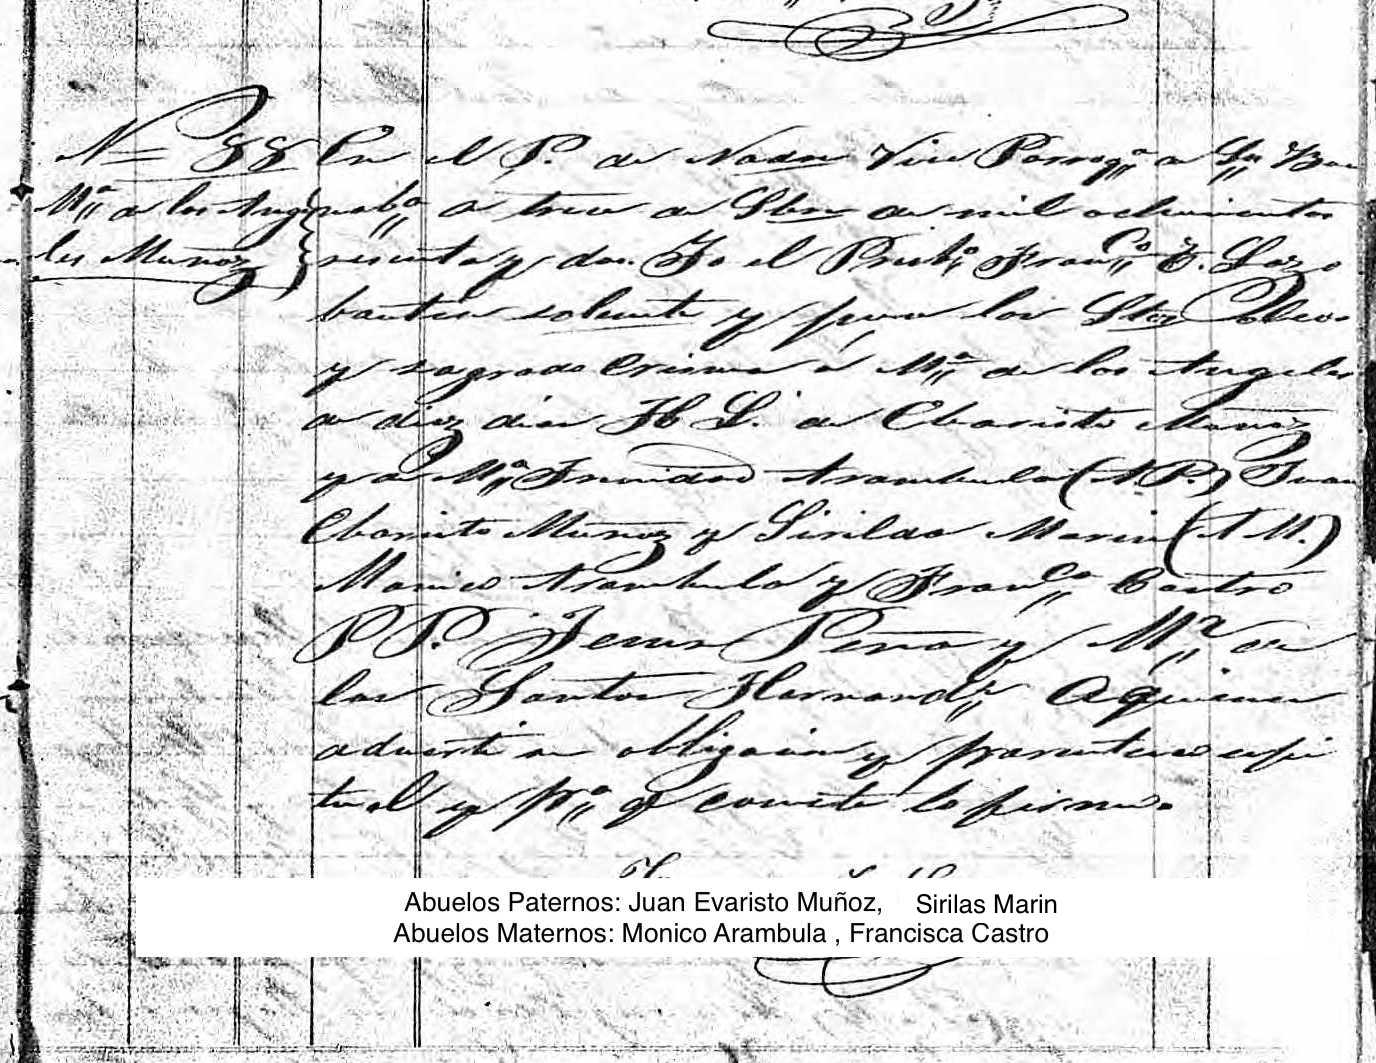 N 88
Ma de los Ange
les Muñoz
En el P. de Vice Parroqa a Sn Bue
nabe a trece de Sbre de mil ochocientos
secenta y dos. Yo el Presbo Franco Lozo
bautice solemte y puse los Stos Oleos
y sagrado Crisma a Ma de los Angeles
de diez dias H. L. de Ebaristo Muñoz
y de Ma Trinidad Arambula (A. P.) Juan
Ebaristo Muñoz y Sirilda Marin (A M.)
Monico Arambula y Franca Castro
P P. Jesus Peña y Ma de
los Santos Hernandz A quienes
adverti su obligacion y parentesco espi
tual y pa q conste lo firme.
Abuelos Paternos: Juan Evaristo Muñoz, Sirilas Marin
Abuelos Maternos: Monico Arambula , Francisca Castro